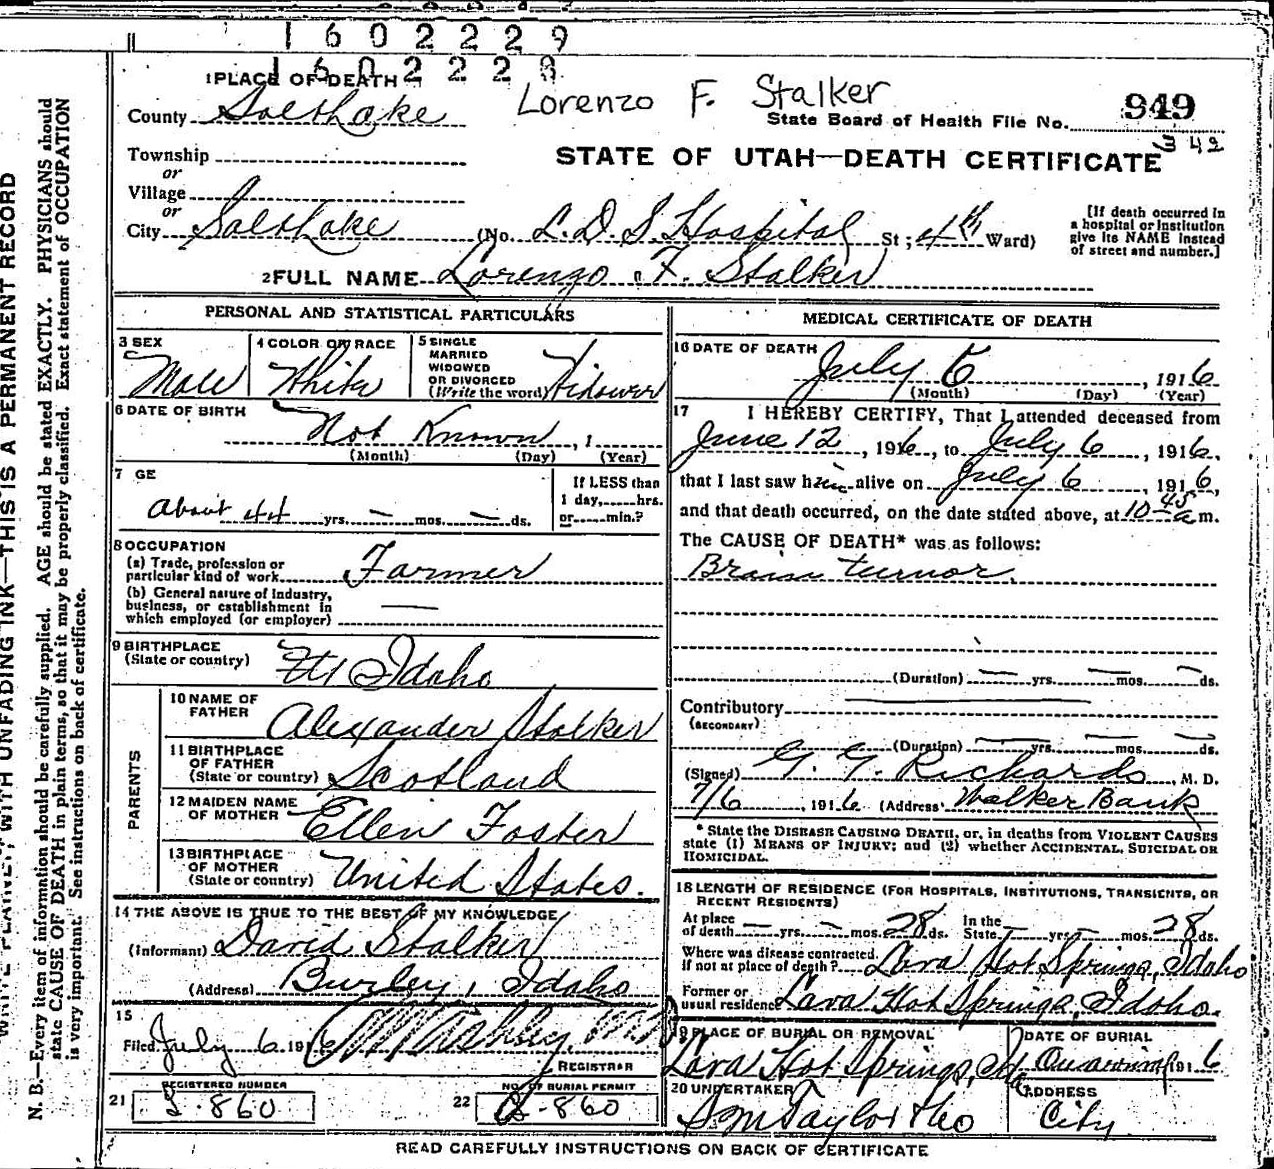 1602229
1602228
1 PLACE OF DEATH
Lorenzo F. Stalker
County Salt Lake
State Board of Health File No. 949
342
Township
or
STATE OF UTAH—DEATH CERTIFICATE
Village
or
City Salt Lake (No. L.D.S. Hospital St; 4th Ward)
[If death occurred in
a hospital or institution
give its NAME instead
of street and number.]
2 FULL NAME Lorenzo F. Stalker
PERSONAL AND STATISTICAL PARTICULARS
3 SEX
Male
4 COLOR OR RACE
White
5 SINGLE
MARRIED
WIDOWED
OR DIVORCED
(Write the word) Widower
6 DATE OF BIRTH
Not Known , 1
(Month) (Day) (Year)
7 GE
About 44 yrs. — mos. — ds.
If LESS than
1 day, hrs.
or min.?
8 OCCUPATION
(a) Trade, profession or
particular kind of work Farmer
(b) General nature of industry,
business, or establishment in
which employed (or employer) —
9 BIRTHPLACE
(State or country) Idaho
PARENTS
10 NAME OF
FATHER Alexander Stalker
11 BIRTHPLACE
OF FATHER
(State or country) Scotland
12 MAIDEN NAME
OF MOTHER Ellen Foster
13 BIRTHPLACE
OF MOTHER
(State or country) United States.
14 THE ABOVE IS TRUE TO THE BEST OF MY KNOWLEDGE
(Informant) David Stalker
(Address) Burley, Idaho
15
Filed July 6 191
REGISTRAR
21 REGISTERED NUMBER
860
22 NO. OF BURIAL PERMIT
860
MEDICAL CERTIFICATE OF DEATH
16 DATE OF DEATH
July 6 , 1916
(Month) (Day) (Year)
17 I HEREBY CERTIFY, That I attended deceased from
June 12 , 1916, to July 6 , 1916,
that I last saw him alive on July 6 , 1916,
and that death occurred, on the date stated above, at 10-45 a m.
The CAUSE OF DEATH* was as follows:
Brain tumor.
(Duration) — yrs. — mos. — ds.
Contributory
(SECONDARY)
(Duration) — yrs. — mos. — ds.
(Signed) G. G. Richards, M. D.
7/6 , 1916 (Address) Walker Bank
* State the DISEASE CAUSING DEATH, or, in deaths from VIOLENT CAUSES
state (1) MEANS OF INJURY; and (2) whether ACCIDENTAL, SUICIDAL OR
HOMICIDAL.
18 LENGTH OF RESIDENCE (FOR HOSPITALS, INSTITUTIONS, TRANSIENTS, OR
RECENT RESIDENTS)
At place
of death — yrs. — mos. 28 ds.
In the
State — yrs. — mos. 28 ds.
Where was disease contracted,
If not at place of death? Lava Hot Springs, Idaho
Former or
usual residence Lava Hot Springs, Idaho.
19 PLACE OF BURIAL OR REMOVAL
Lava Hot Springs, Ida
DATE OF BURIAL
1916
20 UNDERTAKER
S M Taylor & Co
ADDRESS
City
READ CAREFULLY INSTRUCTIONS ON BACK OF CERTIFICATE
WITH UNFADING INK—THIS IS A PERMANENT RECORD
N. B.—Every item of information should be carefully supplied. AGE should be stated EXACTLY. PHYSICIANS should
state CAUSE OF DEATH in plain terms, so that it may be properly classified. Exact statement of OCCUPATION
is very important. See instructions on back of certificate.